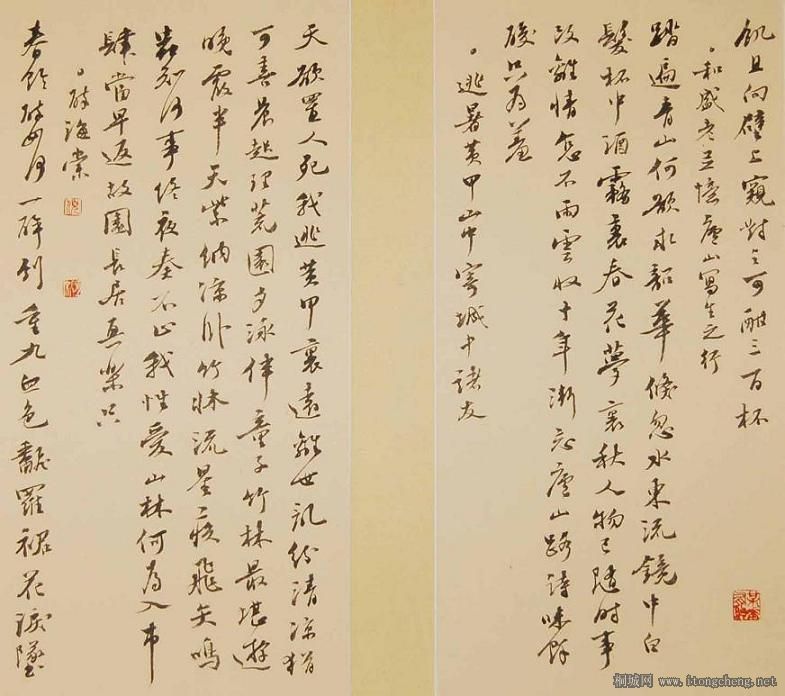 飢且向壁上窺對之可酣三百杯
和盛老五憶廬山寫生之行
踏遍青山何欲求韶華倏忽水東流鏡中白
髮杯中酒霧裏春花夢裏秋人物已隨時事
改離情怎不雨雲收十年漸忘廬山路詩味醇
酸只為羞
逃暑黃甲山中寄城中諸友
天欲置人死我逃黃甲裏遠離世亂紛清涼猶
可喜晨起理荒園夕泳伴童子竹林最堪遊
晚霞半天紫納涼臥竹床流星疾飛矢鳴
蟲知何事終夜奏不止我性愛山林何為入市
肆當早返故園長居真樂只
醉海棠
春饮 一醉到重九血色翻羅裙花淚墜
桐城网 www.itongcheng.net